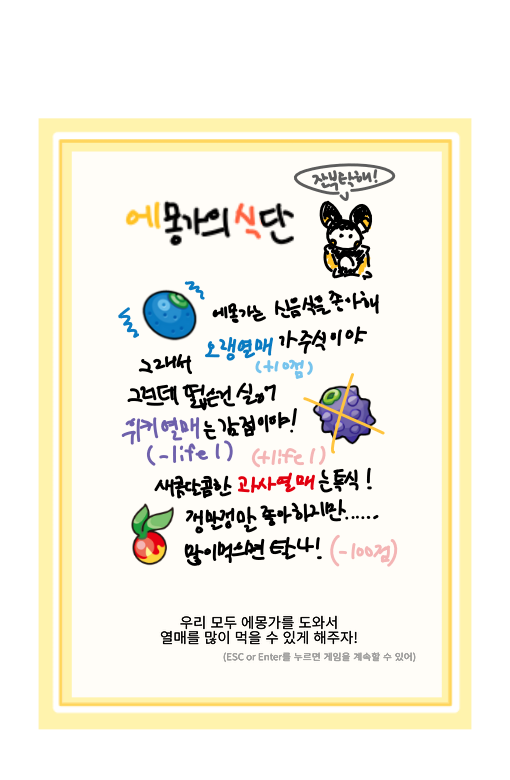 잘부탁해!
에몽가의 식단
에몽가는 신음식을 좋아해
그래서 오랭열매 가 주식이야
(+10점)
그런데 떫은건 싫어?
위키열매는 감점이야!
(-life 1) (+life 1)
새콤달콤한 과사열매는 독식!
정말정말 좋아하지만......
많이먹으면 탈나! (-100점)
우리 모두 에몽가를 도와서
열매를 많이 먹을 수 있게 해주자!
(ESC or Enter를 누르면 게임을 계속할 수 있어)